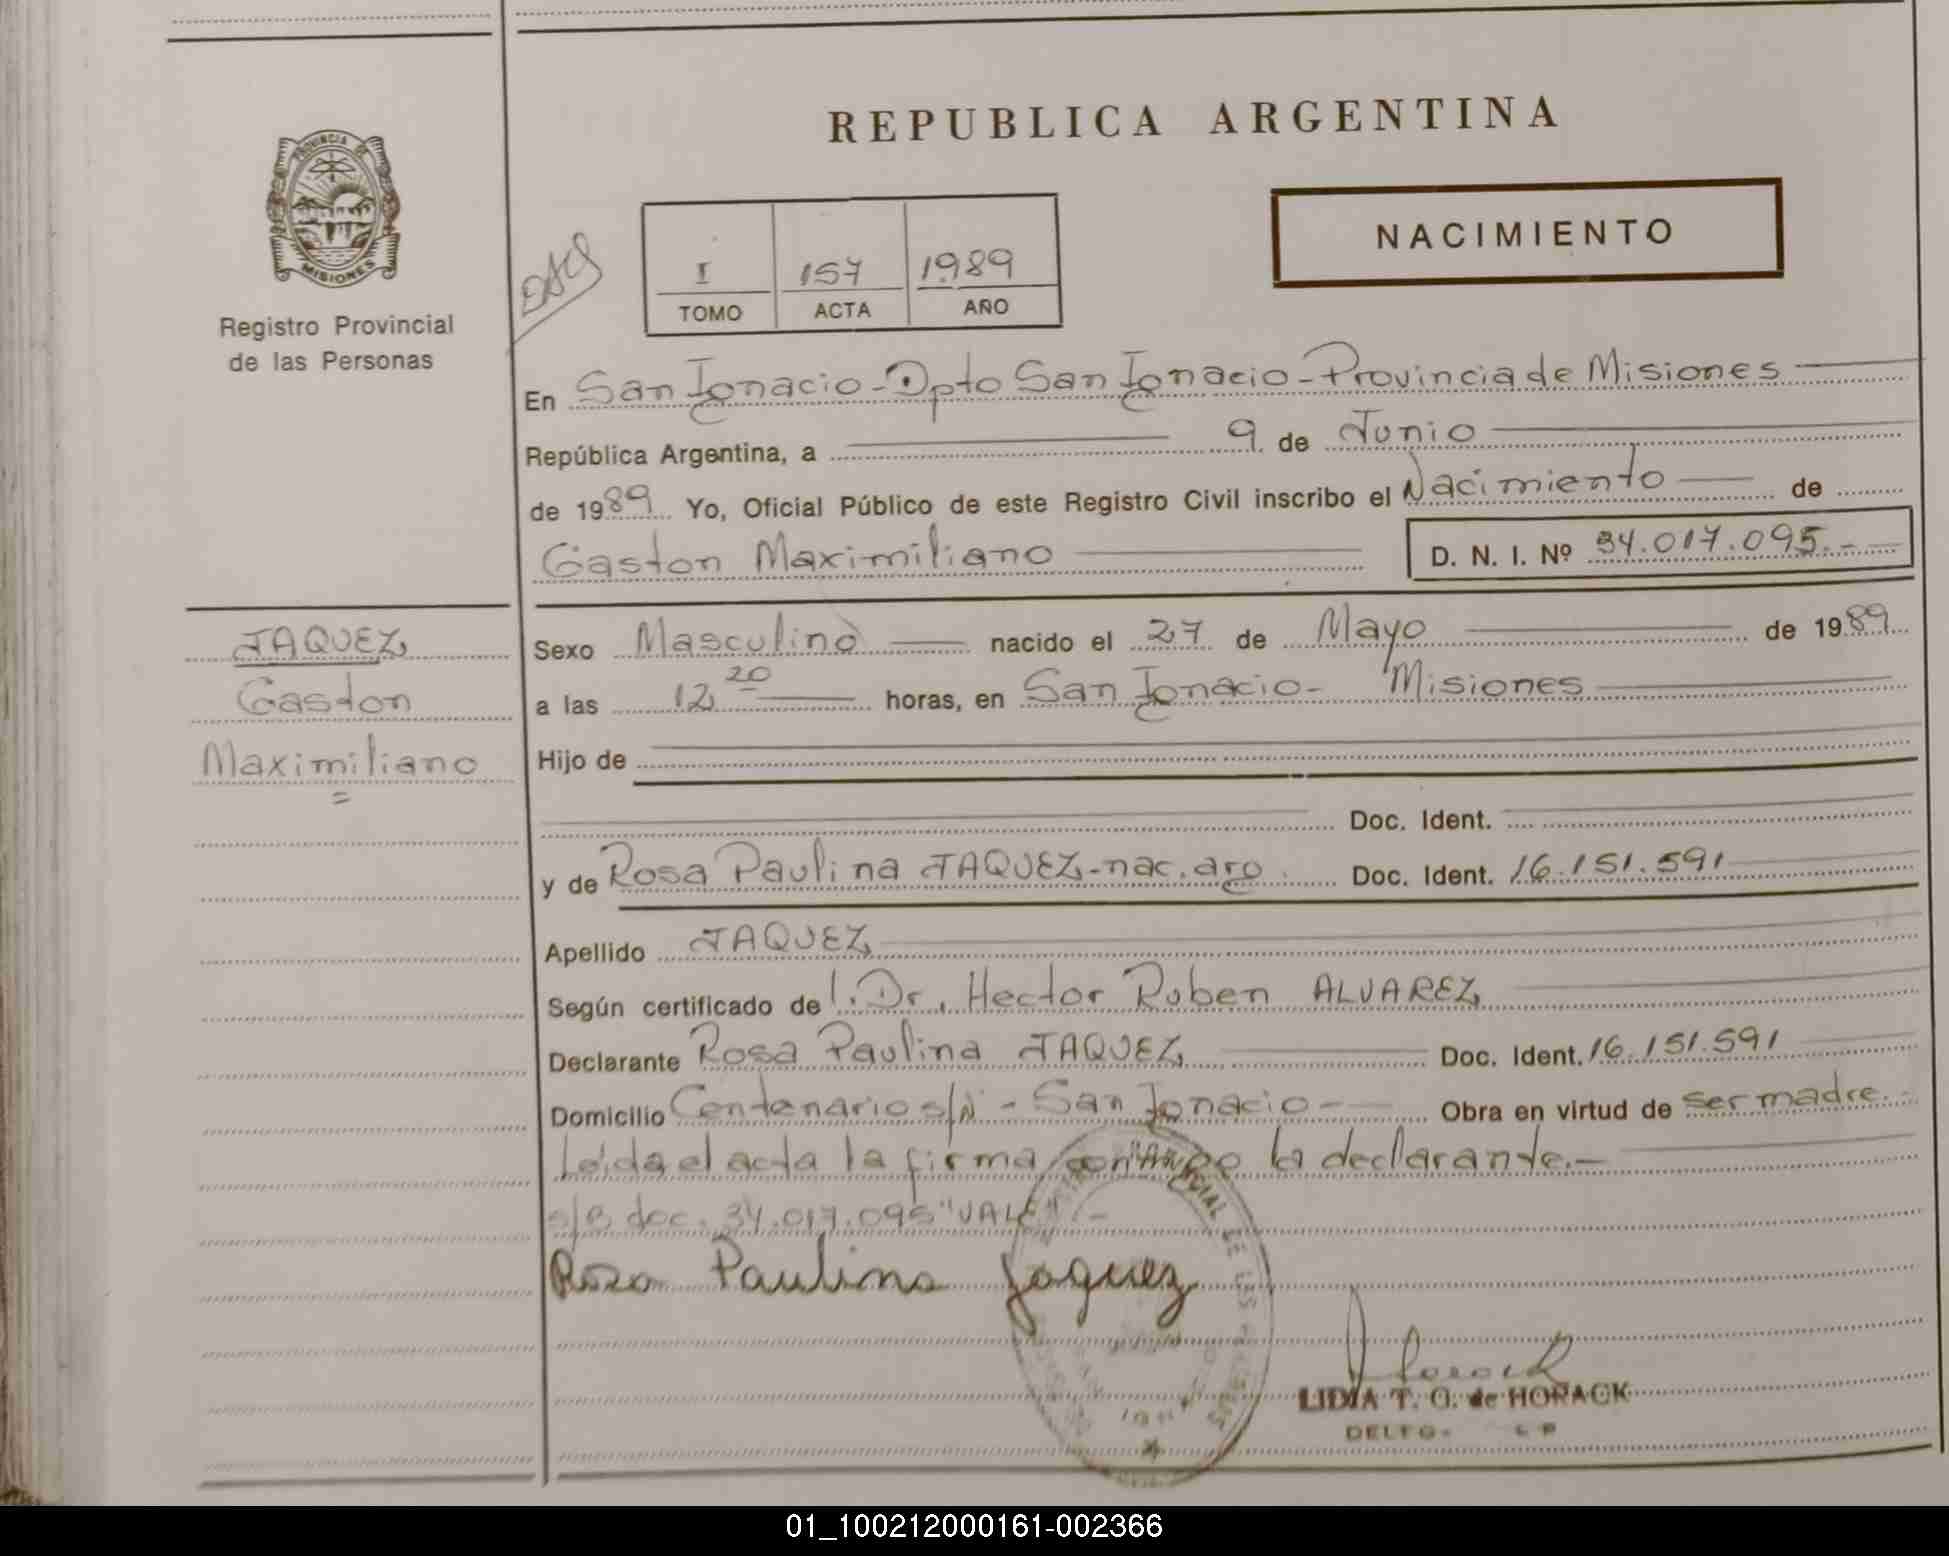 REPUBLICA ARGENTINA
PROVINCIA DE
MISIONES
Registro Provincial
de las Personas
I 157 1989
TOMO ACTA AÑO
NACIMIENTO
En San Ignacio-Dpto San Ignacio-Provincia de Misiones
República Argentina, a 9 de Junio
de 1989 Yo, Oficial Público de este Registro Civil inscribo el Nacimiento de
Gaston Maximiliano D. N. I. Nº 34.017.095.-
JAQUEZ
Gaston
Maximiliano
Sexo Masculino nacido el 27 de Mayo de 1989
a las 12 20 horas, en San Ignacio- Misiones
Hijo de
Doc. Ident.
y de Rosa Paulina JAQUEZ-nac.arg. Doc. Ident. 16.151.591
Apellido JAQUEZ
Según certificado de l.Dr. Hector Ruben ALVAREZ
Declarante Rosa Paulina JAQUEZ Doc. Ident. 16.151.591
Domicilio Centenario s/N - San Ignacio- Obra en virtud de ser madre.-
Leida el acta la firma la declarante.-
s/B doc. 34.017.095 "VALE".-
Rosa Paulina Jaquez
LIDIA T. G. de HORACK
01_100212000161-002366